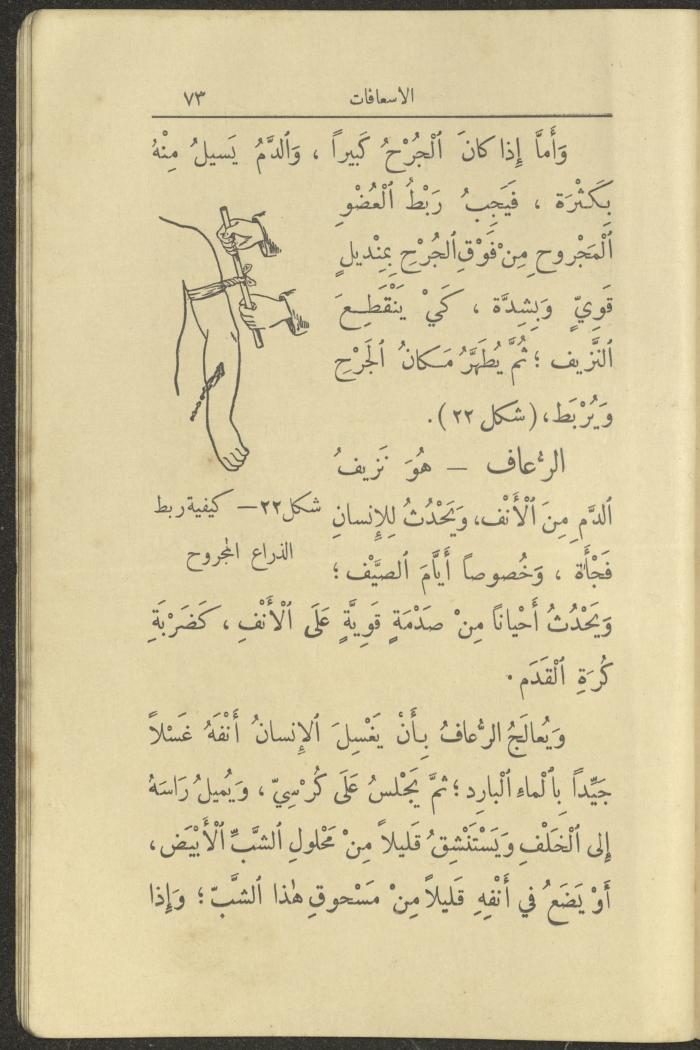 الاسعافات ٧٣
وَأَمَّا إِذا كانَ ٱلْجُرْحُ كَبيراً ، وَٱلدَّمُ يَسيلُ مِنْهُ
بِكَثْرَة ، فَيَجِبُ رَبْطُ ٱلْعُضْوِ
ٱلْمَجْروحِ مِنْ فَوْقِ ٱلْجُرْحِ بِمِنْديلٍ
قَوِيٍّ وَبِشِدَّة ، كَيْ يَنْقَطِعَ
ٱلنَّزيف ؛ ثُمَّ يُطَهَّرُ مَكانُ ٱلْجَرْحِ
وَيُرْبَط، (شكل ٢٢).
الرُّعاف — هُوَ نَزيفُ
ٱلدَّمِ مِنَ ٱلْأَنْف، وَيَحْدُثُ لِلإِنسانِ
فَجْأَة ، وَخُصوصاً أَيَّامَ ٱلصَّيْف ؛
شكل ٢٢ — كيفية ربط
الذراع المجروح
وَيَحْدُثُ أَحْياناً مِنْ صَدْمَةٍ قَوِيَّةٍ عَلَى ٱلْأَنْفِ ، كَضَرْبَةِ
كُرَةِ ٱلْقَدَم .
وَيُعالَجُ الرُّعافُ بِأَنْ يَغْسِلَ ٱلإِنسانُ أَنْفَهُ غَسْلاً
جَيِّداً بِٱلْماءِ ٱلْبارِد ؛ ثمَّ يَجْلسُ عَلَى كُرْسِيّ ، وَيُميلُ رَاسَهُ
إِلى ٱلْخَلْفِ وَيَسْتَنْشِقُ قَليلاً مِنْ مَحْلولِ ٱلشَّبِّ ٱلْأَبْيَض ،
أَوْ يَضَعُ في أَنْفِهِ قَليلاً مِنْ مَسْحوقِ هٰذا ٱلشَّبّ ؛ وَإِذا